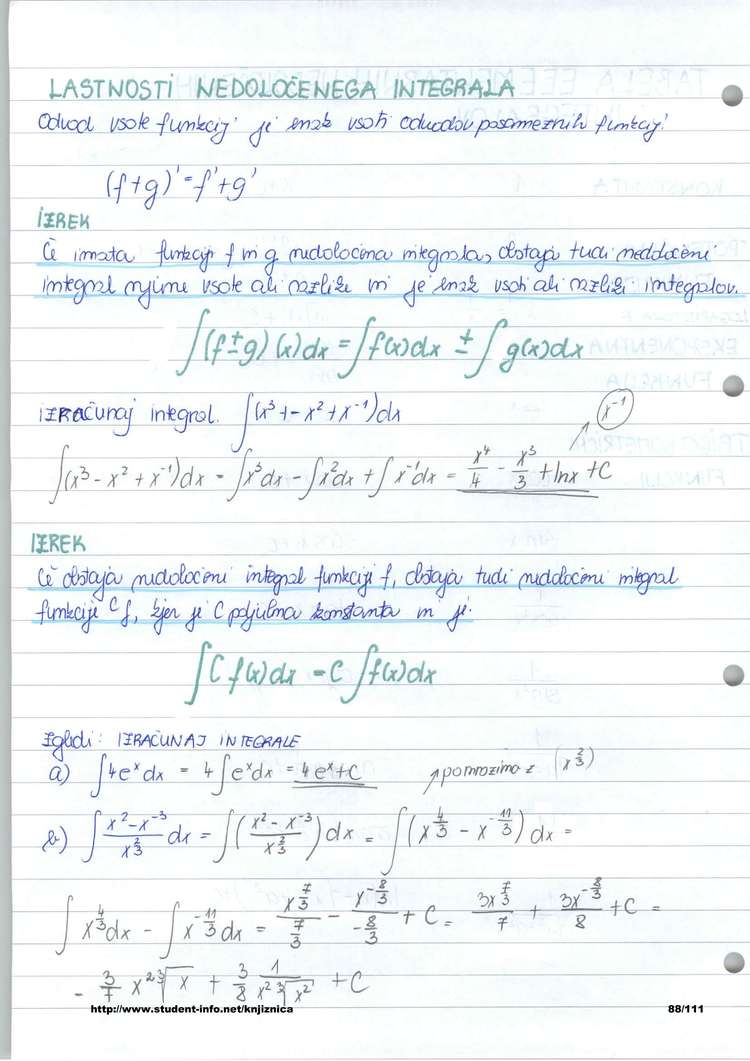 LASTNOSTI NEDOLOČENEGA INTEGRALA
Odvod vsote funkcij je enak vsoti odvodov posameznih funkcij.
(f+g)' = f' + g'
IZREK
Če imata funkciji f in g nedoločena integrala, obstaja tudi nedoločeni
integral njune vsote ali razlike in je enak vsoti ali razliki integralov.
∫(f±g)(x)dx = ∫f(x)dx ± ∫g(x)dx
IZRAČUNAJ integral. ∫(x³+-x²+x⁻¹)dx
x⁻¹
∫(x³-x²+x⁻¹)dx = ∫x³dx - ∫x²dx + ∫x⁻¹dx = x⁴/4 - x³/3 + lnx + C
IZREK
Če obstaja nedoločeni integral funkcije f, obstaja tudi nedoločeni integral
funkcije Cf, kjer je C poljubna konstanta in je:
∫C f(x)dx = C ∫f(x)dx
Zgledi: IZRAČUNAJ INTEGRALE
a) ∫4eˣdx = 4∫eˣdx = 4eˣ+C
pomnozimo z (x^(2/3))
b) ∫(x²-x⁻³)/x^(2/3) dx = ∫((x²-x⁻³)/x^(2/3))dx = ∫(x^(4/3) - x^(-11/3))dx =
∫x^(4/3)dx - ∫x^(-11/3)dx = x^(7/3)/(7/3) - x^(-8/3)/(-8/3) + C = 3x^(7/3)/7 + 3x^(-8/3)/8 + C =
= 3/7 x² ³√x + 3/8 1/(x² ³√x²) + C
http://www.student-info.net/knjiznica
88/111